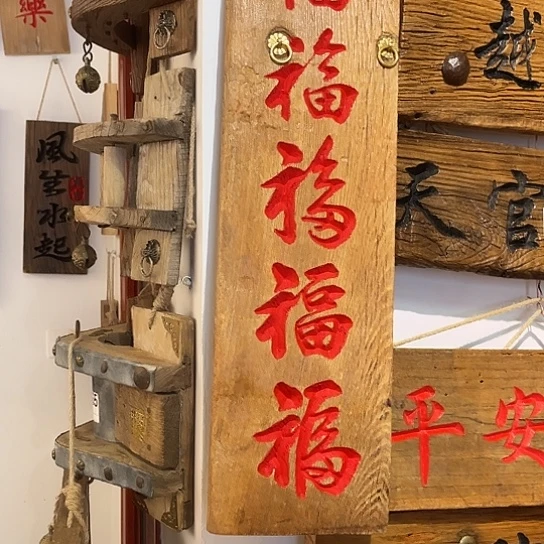 樂
風生水起
福
福
福
福
福
越
天官
平安